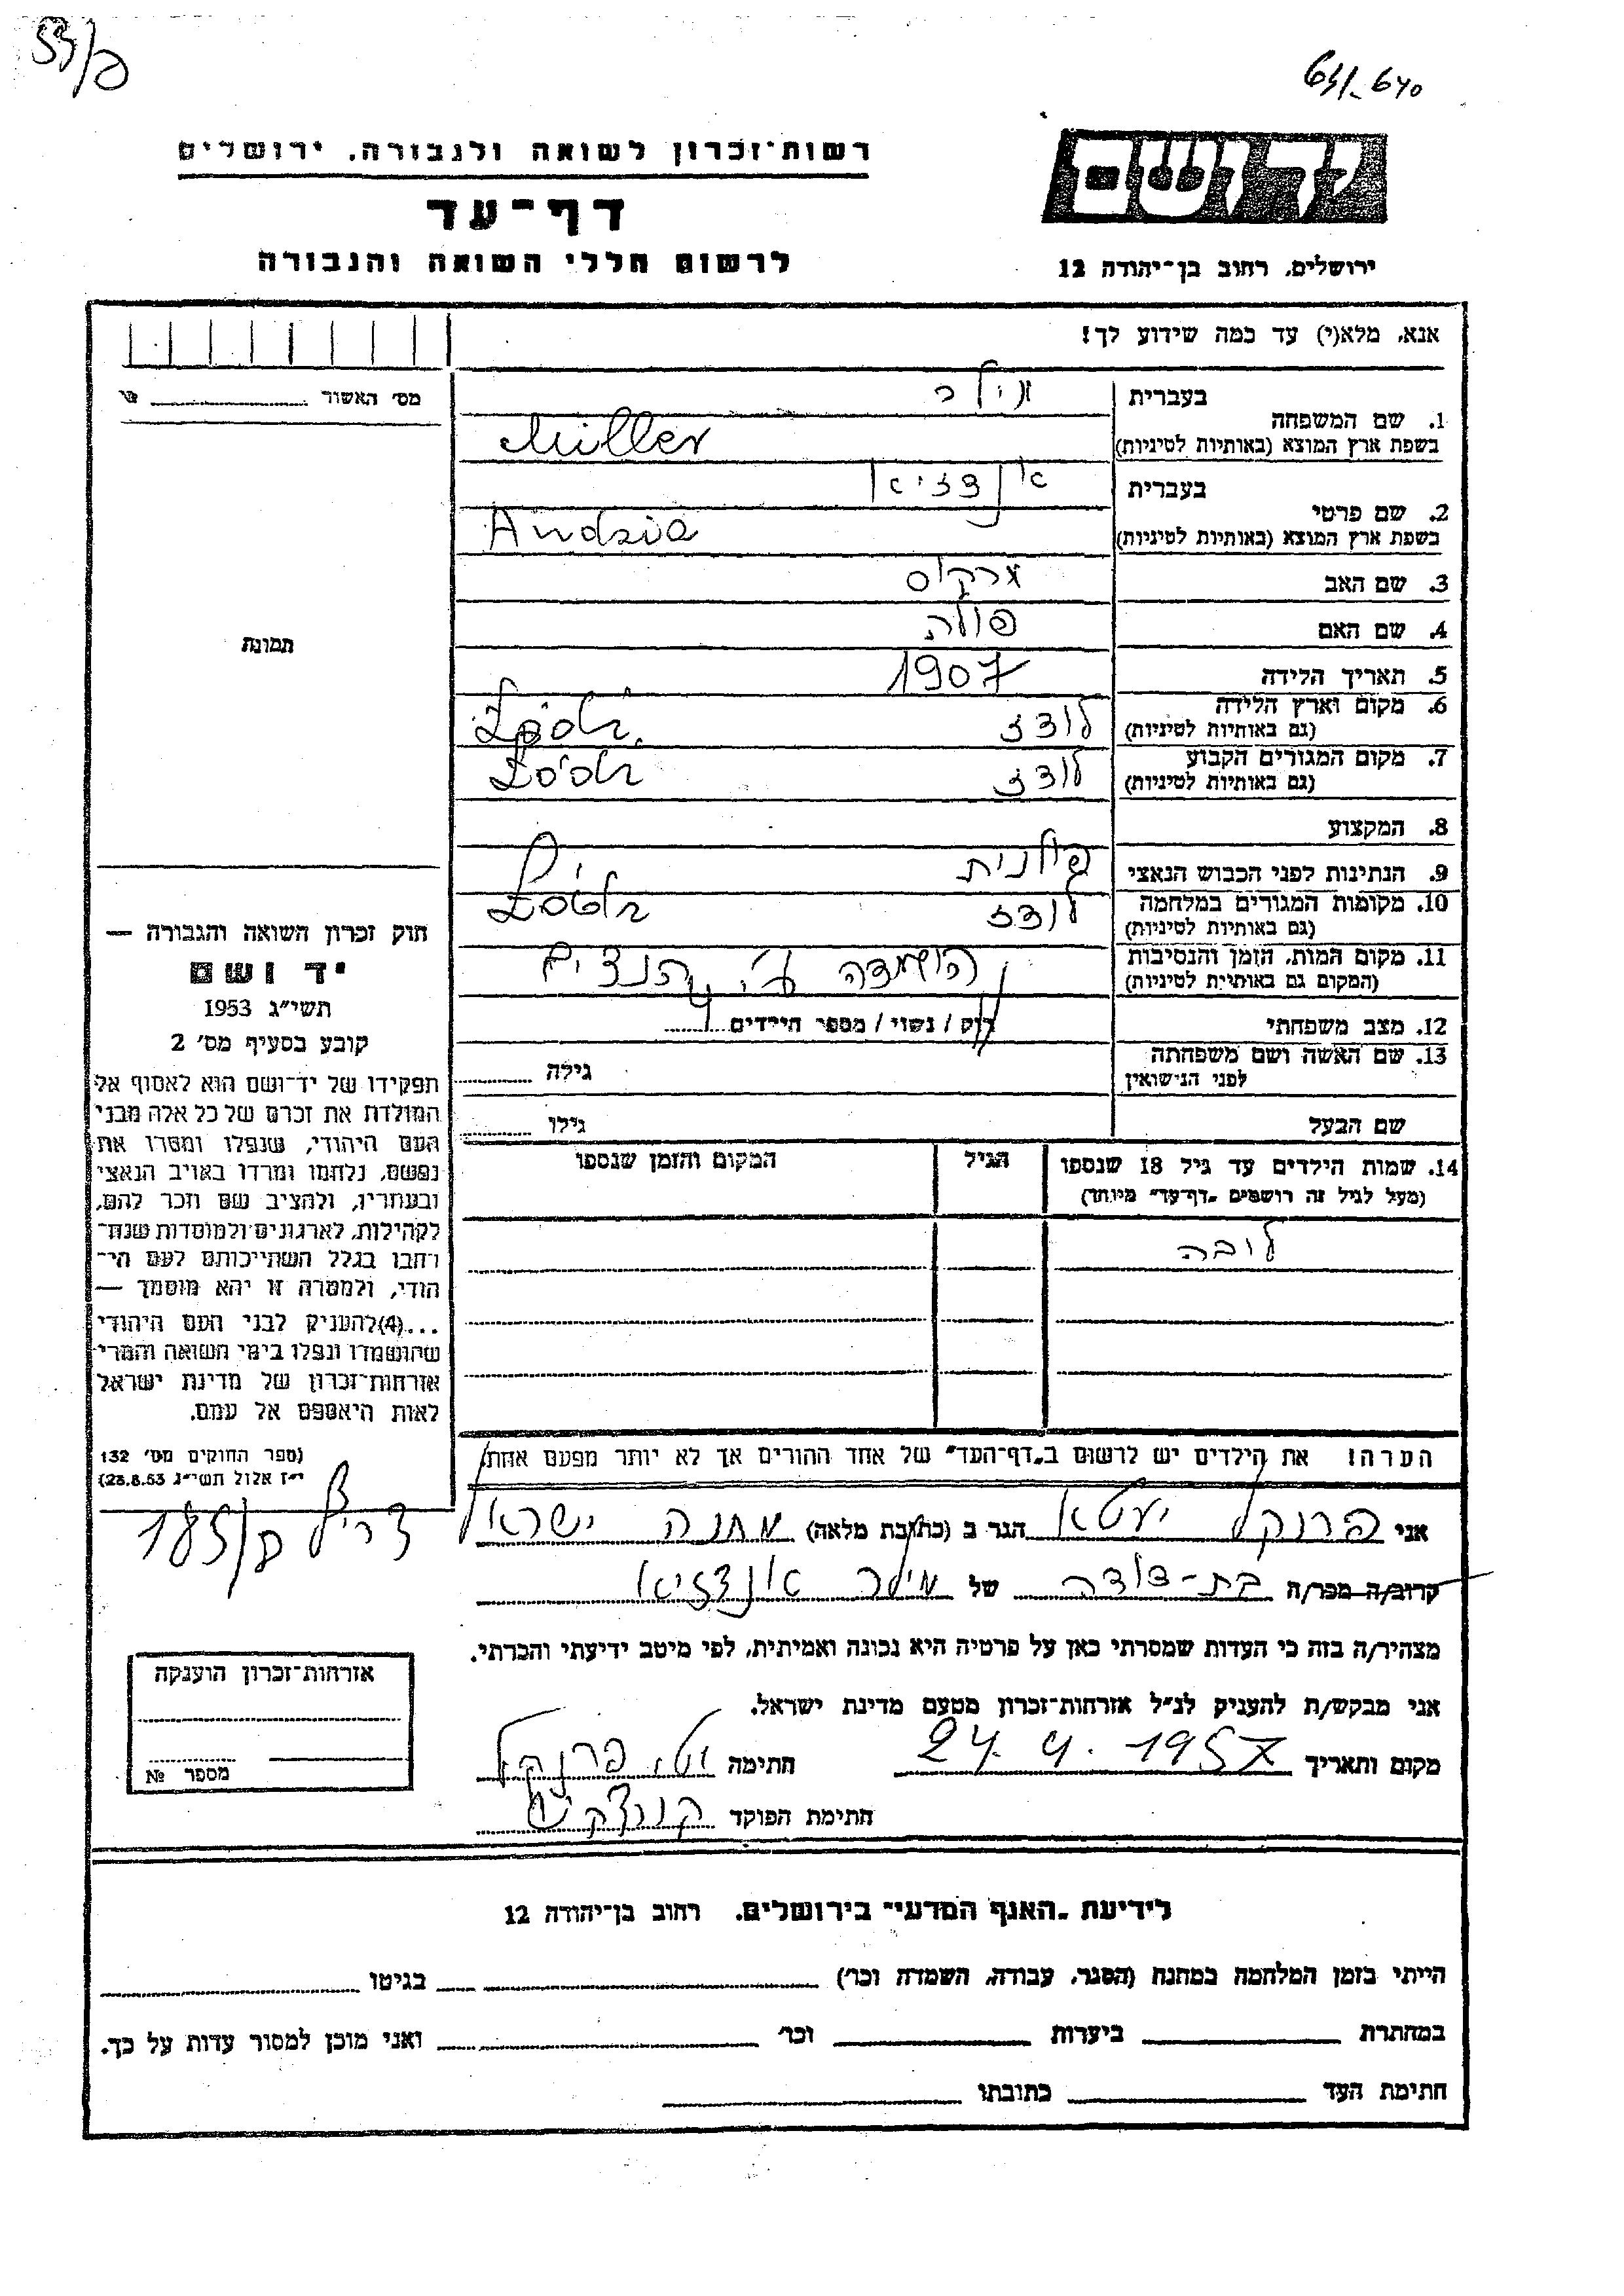 55/פ
631-640
יד ושם
ירושלים, רחוב בן־יהודה 12
רשות־זכרון לשואה ולגבורה, ירושלים
דף־עד
לרשום חללי השואה והגבורה
אנא, מלא(י) עד כמה שידוע לך!
מס' האשור
1. שם המשפחה
בעברית
מילר
בשפת ארץ המוצא (באותיות לטיניות)
Miller
2. שם פרטי
בעברית
אנדזיא
בשפת ארץ המוצא (באותיות לטיניות)
Andzia
3. שם האב
מרקוס
4. שם האם
פולה
5. תאריך הלידה
1907
6. מקום וארץ הלידה
(גם באותיות לטיניות)
לודז Łódź
7. מקום המגורים הקבוע
(גם באותיות לטיניות)
לודז Łódź
8. המקצוע
9. הנתינות לפני הכבוש הנאצי
פולנית
10. מקומות המגורים במלחמה
(גם באותיות לטיניות)
לודז Łódź
11. מקום המות, הזמן והנסיבות
(המקום גם באותיות לטיניות)
הושמדה ע״י הנצים
12. מצב משפחתי
רוק / נשוי / מספר הילדים
13. שם האשה ושם משפחתה
לפני הנישואין
גילה
שם הבעל
גילו
14. שמות הילדים עד גיל 18 שנספו
(מעל לגיל זה רושמים „דף־עד״ מיוחד)
הגיל
המקום והזמן שנספו
לובה
תמונת
חוק זכרון השואה והגבורה —
יד ושם
תשי״ג 1953
קובע בסעיף מס' 2
תפקידו של יד־ושם הוא לאסוף אל
המולדת את זכרם של כל אלה מבני
העם היהודי, שנפלו ומסרו את
נפשם, נלחמו ומרדו באויב הנאצי
ובעוזריו, ולהציב שם וזכר להם,
לקהילות, לארגונים ולמוסדות שנח־
רבו בגלל השתייכותם לעם הי־
הודי, ולמטרה זו יהא מוסמך —
...(4)להעניק לבני העם היהודי
שהושמדו ונפלו בימי השואה והמרי
אזרחות־זכרון של מדינת ישראל
לאות היאספם אל עמם.
(ספר החוקים מס' 132
י״ז אלול תשי״ג 28.8.53)
הערה! את הילדים יש לרשום ב„דף־העד״ של אחד ההורים אך לא יותר מפעם אחת.
185/פ
אני פרנקל יעטא הגר ב (כתובת מלאה) מחנה ישראל
קרוב/ה מכר/ה בת-דודה של מילר אנדזיא
מצהיר/ה בזה כי העדות שמסרתי כאן על פרטיה היא נכונה ואמיתית, לפי מיטב ידיעתי והכרתי.
אני מבקש/ת להעניק לנ״ל אזרחות־זכרון מטעם מדינת ישראל.
מקום ותאריך 24.4.1957 חתימה יטא פרנקל
חתימת הפוקד
אזרחות־זכרון הוענקה
מספר №
לידיעת „האגף המדעי״ בירושלים, רחוב בן־יהודה 12
הייתי בזמן המלחמה במחנה (הסגר, עבודה, השמדה וכר') בגיטו
במחתרת ביערות וכר' ואני מוכן למסור עדות על כך.
חתימת העד כתובתו